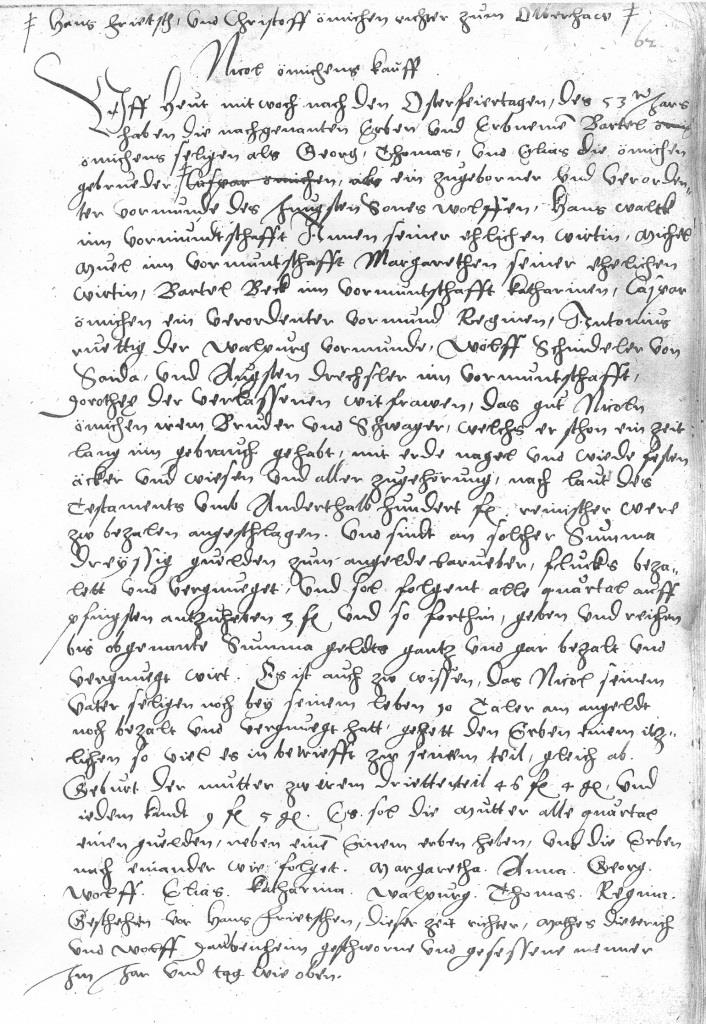 Hans Frietsch, und Christoff ömichen richter zum Oberhaw
62
Nicol ömichens kauff
Uff heut mitwoch nach den Osterfeiertagen, des 53 Jars
haben die nachgenanten Erben und Erbnemen Bartel
ömichens seligen als Georg, Thomas, und Elias die ömichen
gebrueder Caspar ömichen, als ein zugeborner und verorden-
ter vormunde des Jungsten Sones wolffen, Hans waltk
im vormundtschafft Annen seiner ehlichen wirtin, Michel
im vormuntschafft Margarethen seiner ehelichen
wirtin, Bartel Beck im vormuntschafft katharinen, Caspar
ömichen ein verordenter vormund Reginen, Antonius
ruettig der walpurg vormunde, Wolff Schindeler von
Sorda, und Augsten drechsler im vormuntschafft,
dorothee der verlassenen witfrawen, das gut Nicoln
ömichen irem Bruder und Schwager, welchs er schon ein zeit
lang im gebrauch gehabt, mit erde nagel und wiede festen
äcker und wiesen und aller zugehörung, nach laut des
Testaments umb Anderthalb hundert fl reinischer were
zw bezalen angeschlagen. Und sindt an solcher Summa
dreyssig guelden zum angelde barueber, flucks beza-
lett und vergnueget, Und sol folgent alle quartal auff
pfingsten antzuheben 3 fl und so forthin, geben und reichen
bis obgenante Summa geldts gantz und gar bezalt und
vergnuegt wirt. Es ist auch zw wissen, das Nicol seinem
vater seligen noch bey seinem leben 10 Taler am angeldt
noch bezalt und vergnuegt hatt, gehett den Erben einem itz-
lichen so viel es in betriefft zw seinem teil, gleich ab.
Geburt der mutter zw irem drietteteil 46 fl 4 gl, und
iedem kindt 9 fl 5 gl. Es sol die Mutter alle quartal
einen guelden, neben einem Erben heben, und die Erben
nach einander wie folget. Margaretha. Anna. Georg.
Wolff. Elias. Katharina. Walpurg. Thomas. Regina.
Geschehen vor Hans Frietschen, dieser zeit richter, Mathes dieterich
und Wolff daubenheim geschworne und gesessene menner
Im Jar und tag wie oben.